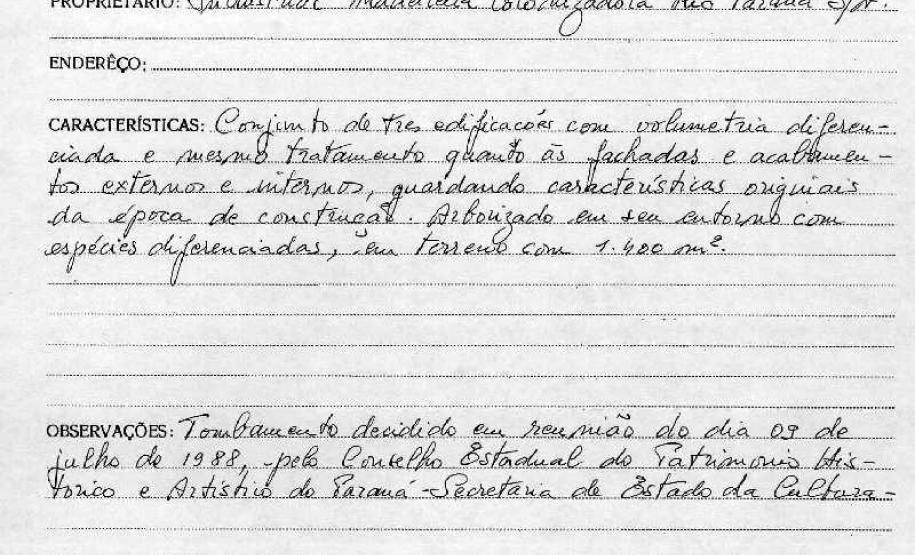 PROPRIETÁRIO: Industrial Madeireira Colonizadora Rio Paraná S/A.
ENDERÊÇO:
CARACTERÍSTICAS: Conjunto de tres edificações com volumetria diferen-
ciada e mesmo tratamento quanto às fachadas e acabamen-
tos externos e internos, guardando características originais
da época de construção. Arborizado em seu entorno com
espécies diferenciadas, em terreno com 1.400 m².
OBSERVAÇÕES: Tombamento decidido em reunião do dia 09 de
julho de 1988, pelo Conselho Estadual do Patrimonio His-
tórico e Artístico do Paraná - Secretaria de Estado da Cultura -